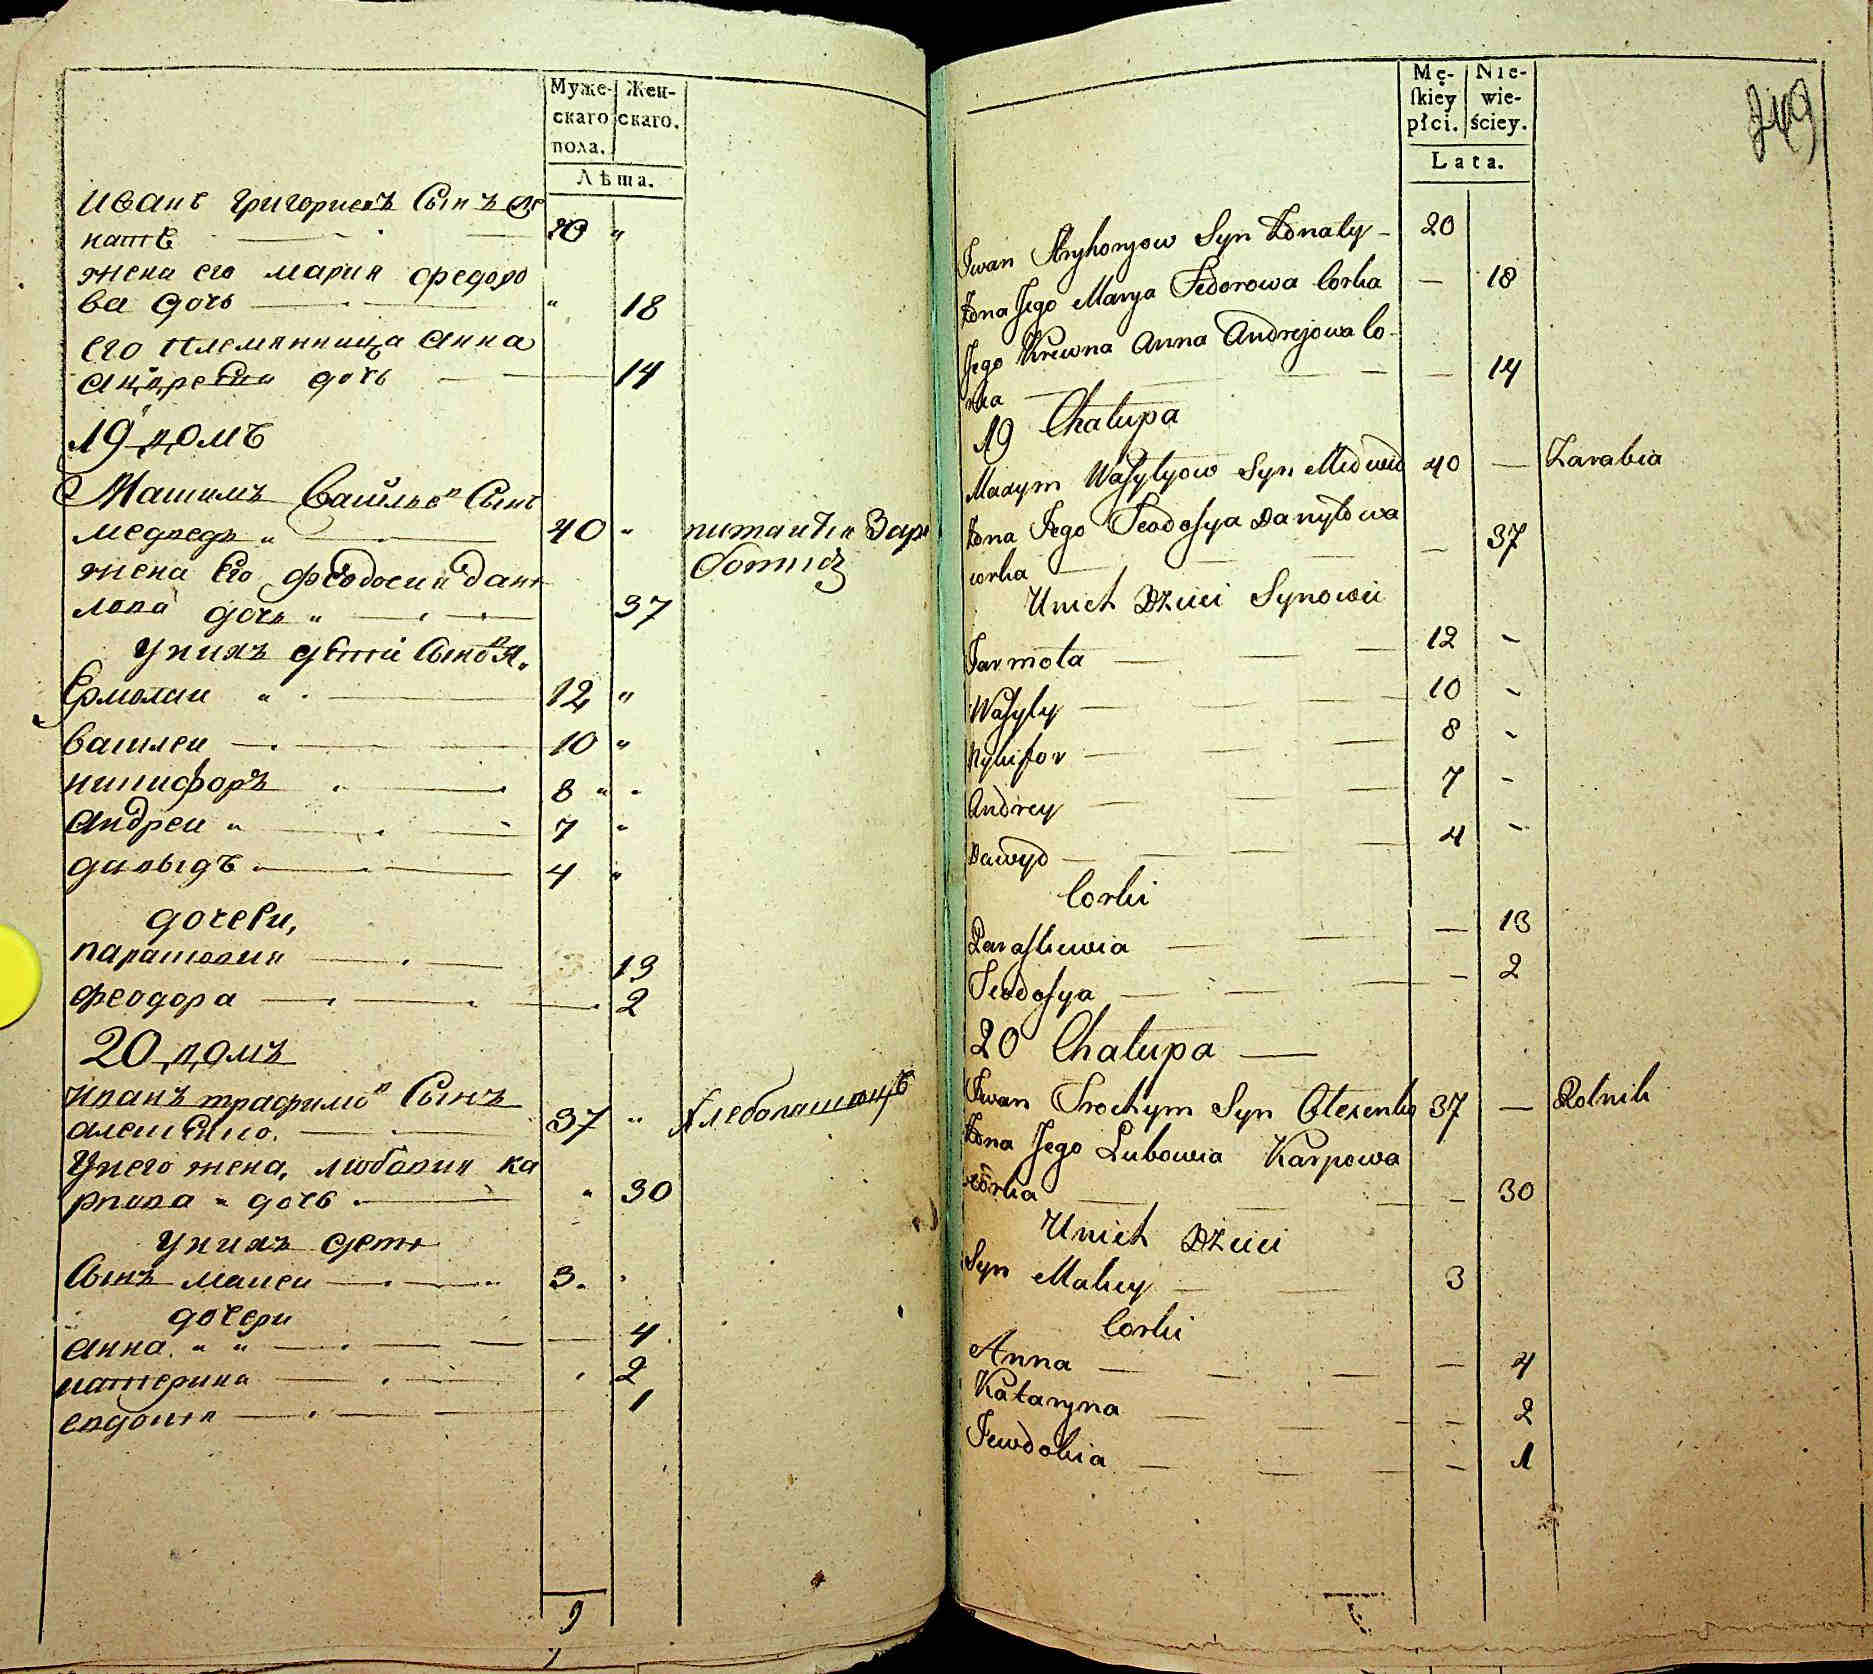 Муже-
скаго
пола.
Жен-
скаго.
Лѣта.
Иванъ Григориевъ Сынъ До
натъ 20 "
жена его мария федоро
ва дочь " 18
его племянница анна
андреева дочь 14
19 домъ
Максимъ Васильев Сынъ
медведь 40 " питаитца Зара
ботию
жена Его феодосия дани
лова дочь 37
У нихъ детей Сынов я.
Ермолаи 12 "
василеи 10 "
никифоръ 8 "
андреи 7 "
давыдъ 4 "
дочери,
парасковия 13
феодора 2
20 домъ
иванъ трафимов Сынъ
алексенко. 37 " хлебопашецъ
У него жена, любовия ка
рпова дочь " 30
У нихъ дети
Сынъ макеи 3.
дочери
анна 4
катерина 2
евдокия 1
9
Mę-
skiey
płci.
Nie-
wie-
ściey.
Lata.
249
Iwan Hryhoryow Syn Donaty 20
Żona Jego Marya Fedorowa Corka — 18
Jego Krewna Anna Andrejowa Co-
rka — 14
19 Chalupa
Maxym Wasylyow Syn Medwid 40 — Zarabia
Żona Jego Teodosya Danylowa
corka — 37
Unich Dzieci Synowie
Jarmola 12 -
Wasyly 10 -
Nykifor 8 -
Andrey 7 -
Dawyd 4 -
Corki
Paraskiewia — 13
Teodosya — 2
20 Chalupa
Iwan Trochym Syn Olexenko 37 — Rolnik
Żona Jego Lubowia Karpowa
córka — 30
Unich Dzieci
Syn Makey 3
Corki
Anna — 4
Kataryna - 2
Jewdokia - 1